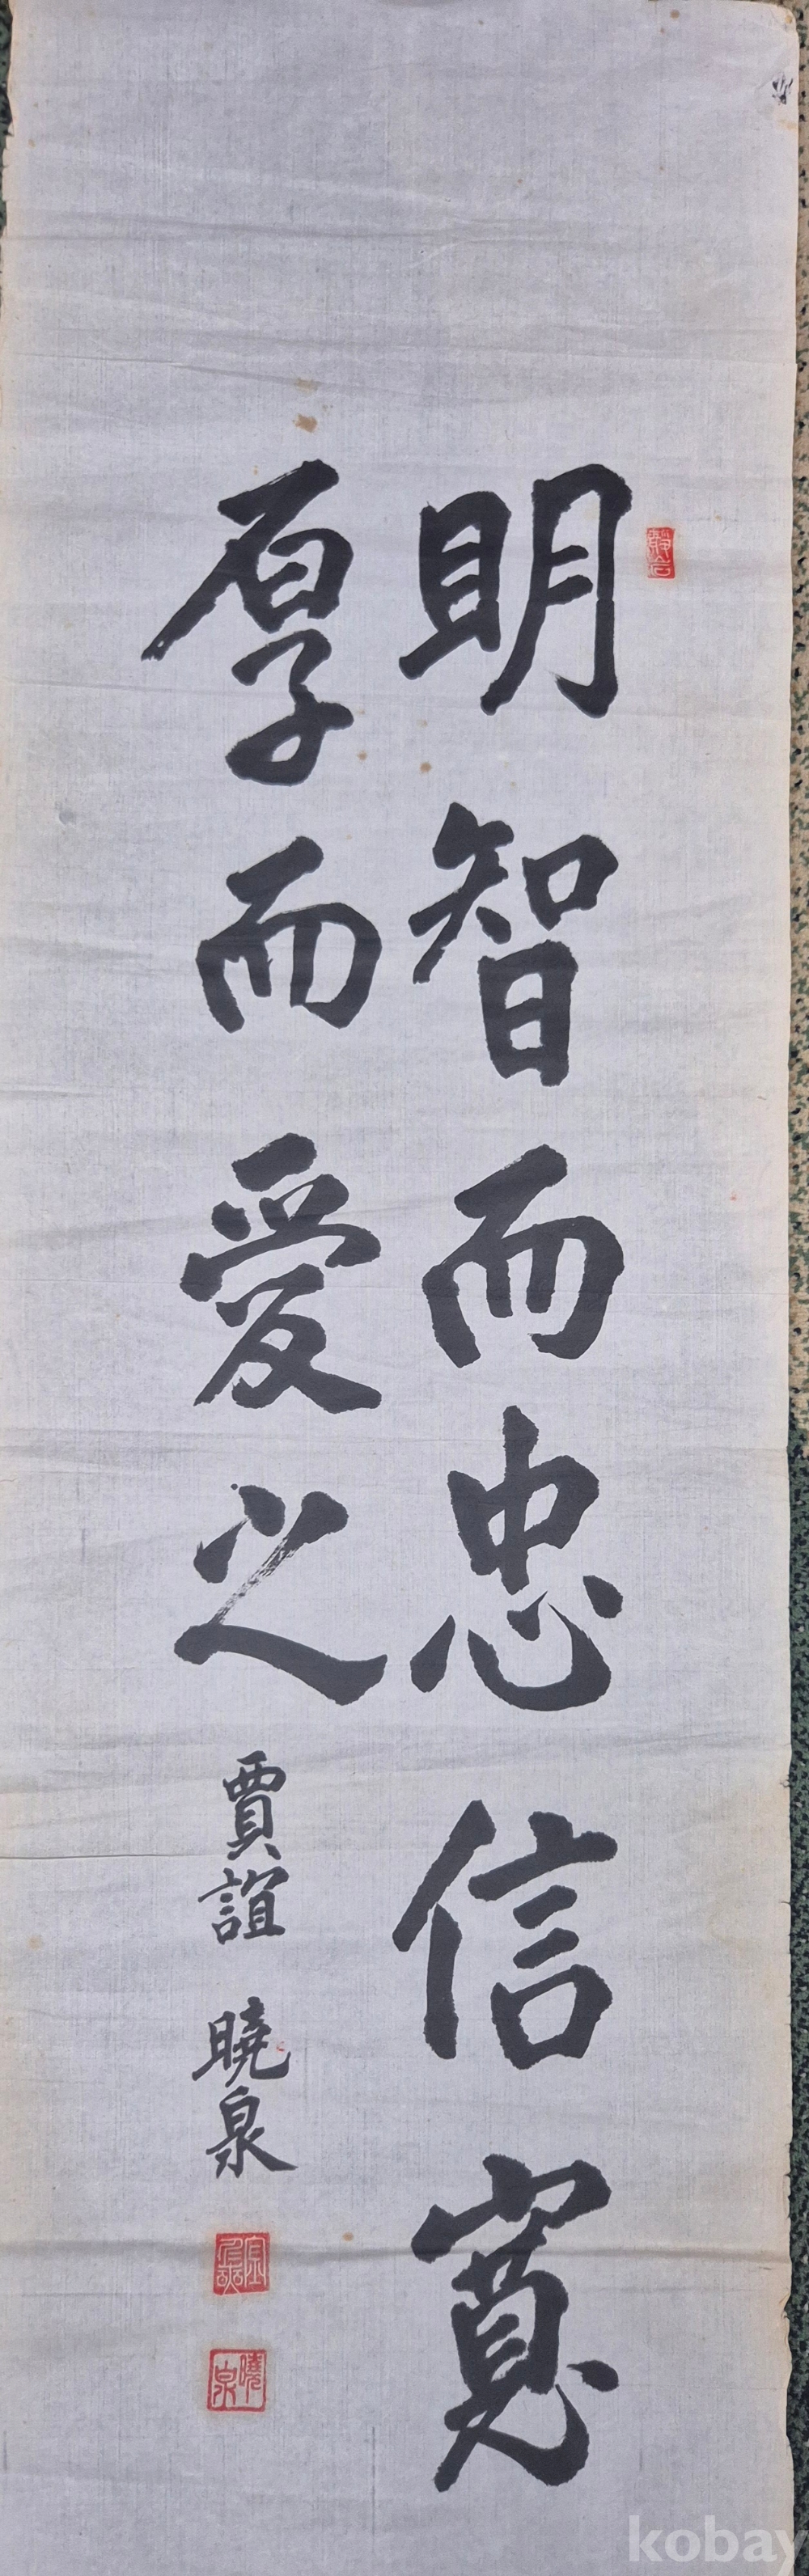 明智而忠信寬
厚而愛之 賈誼 曉泉
曉泉
kobay